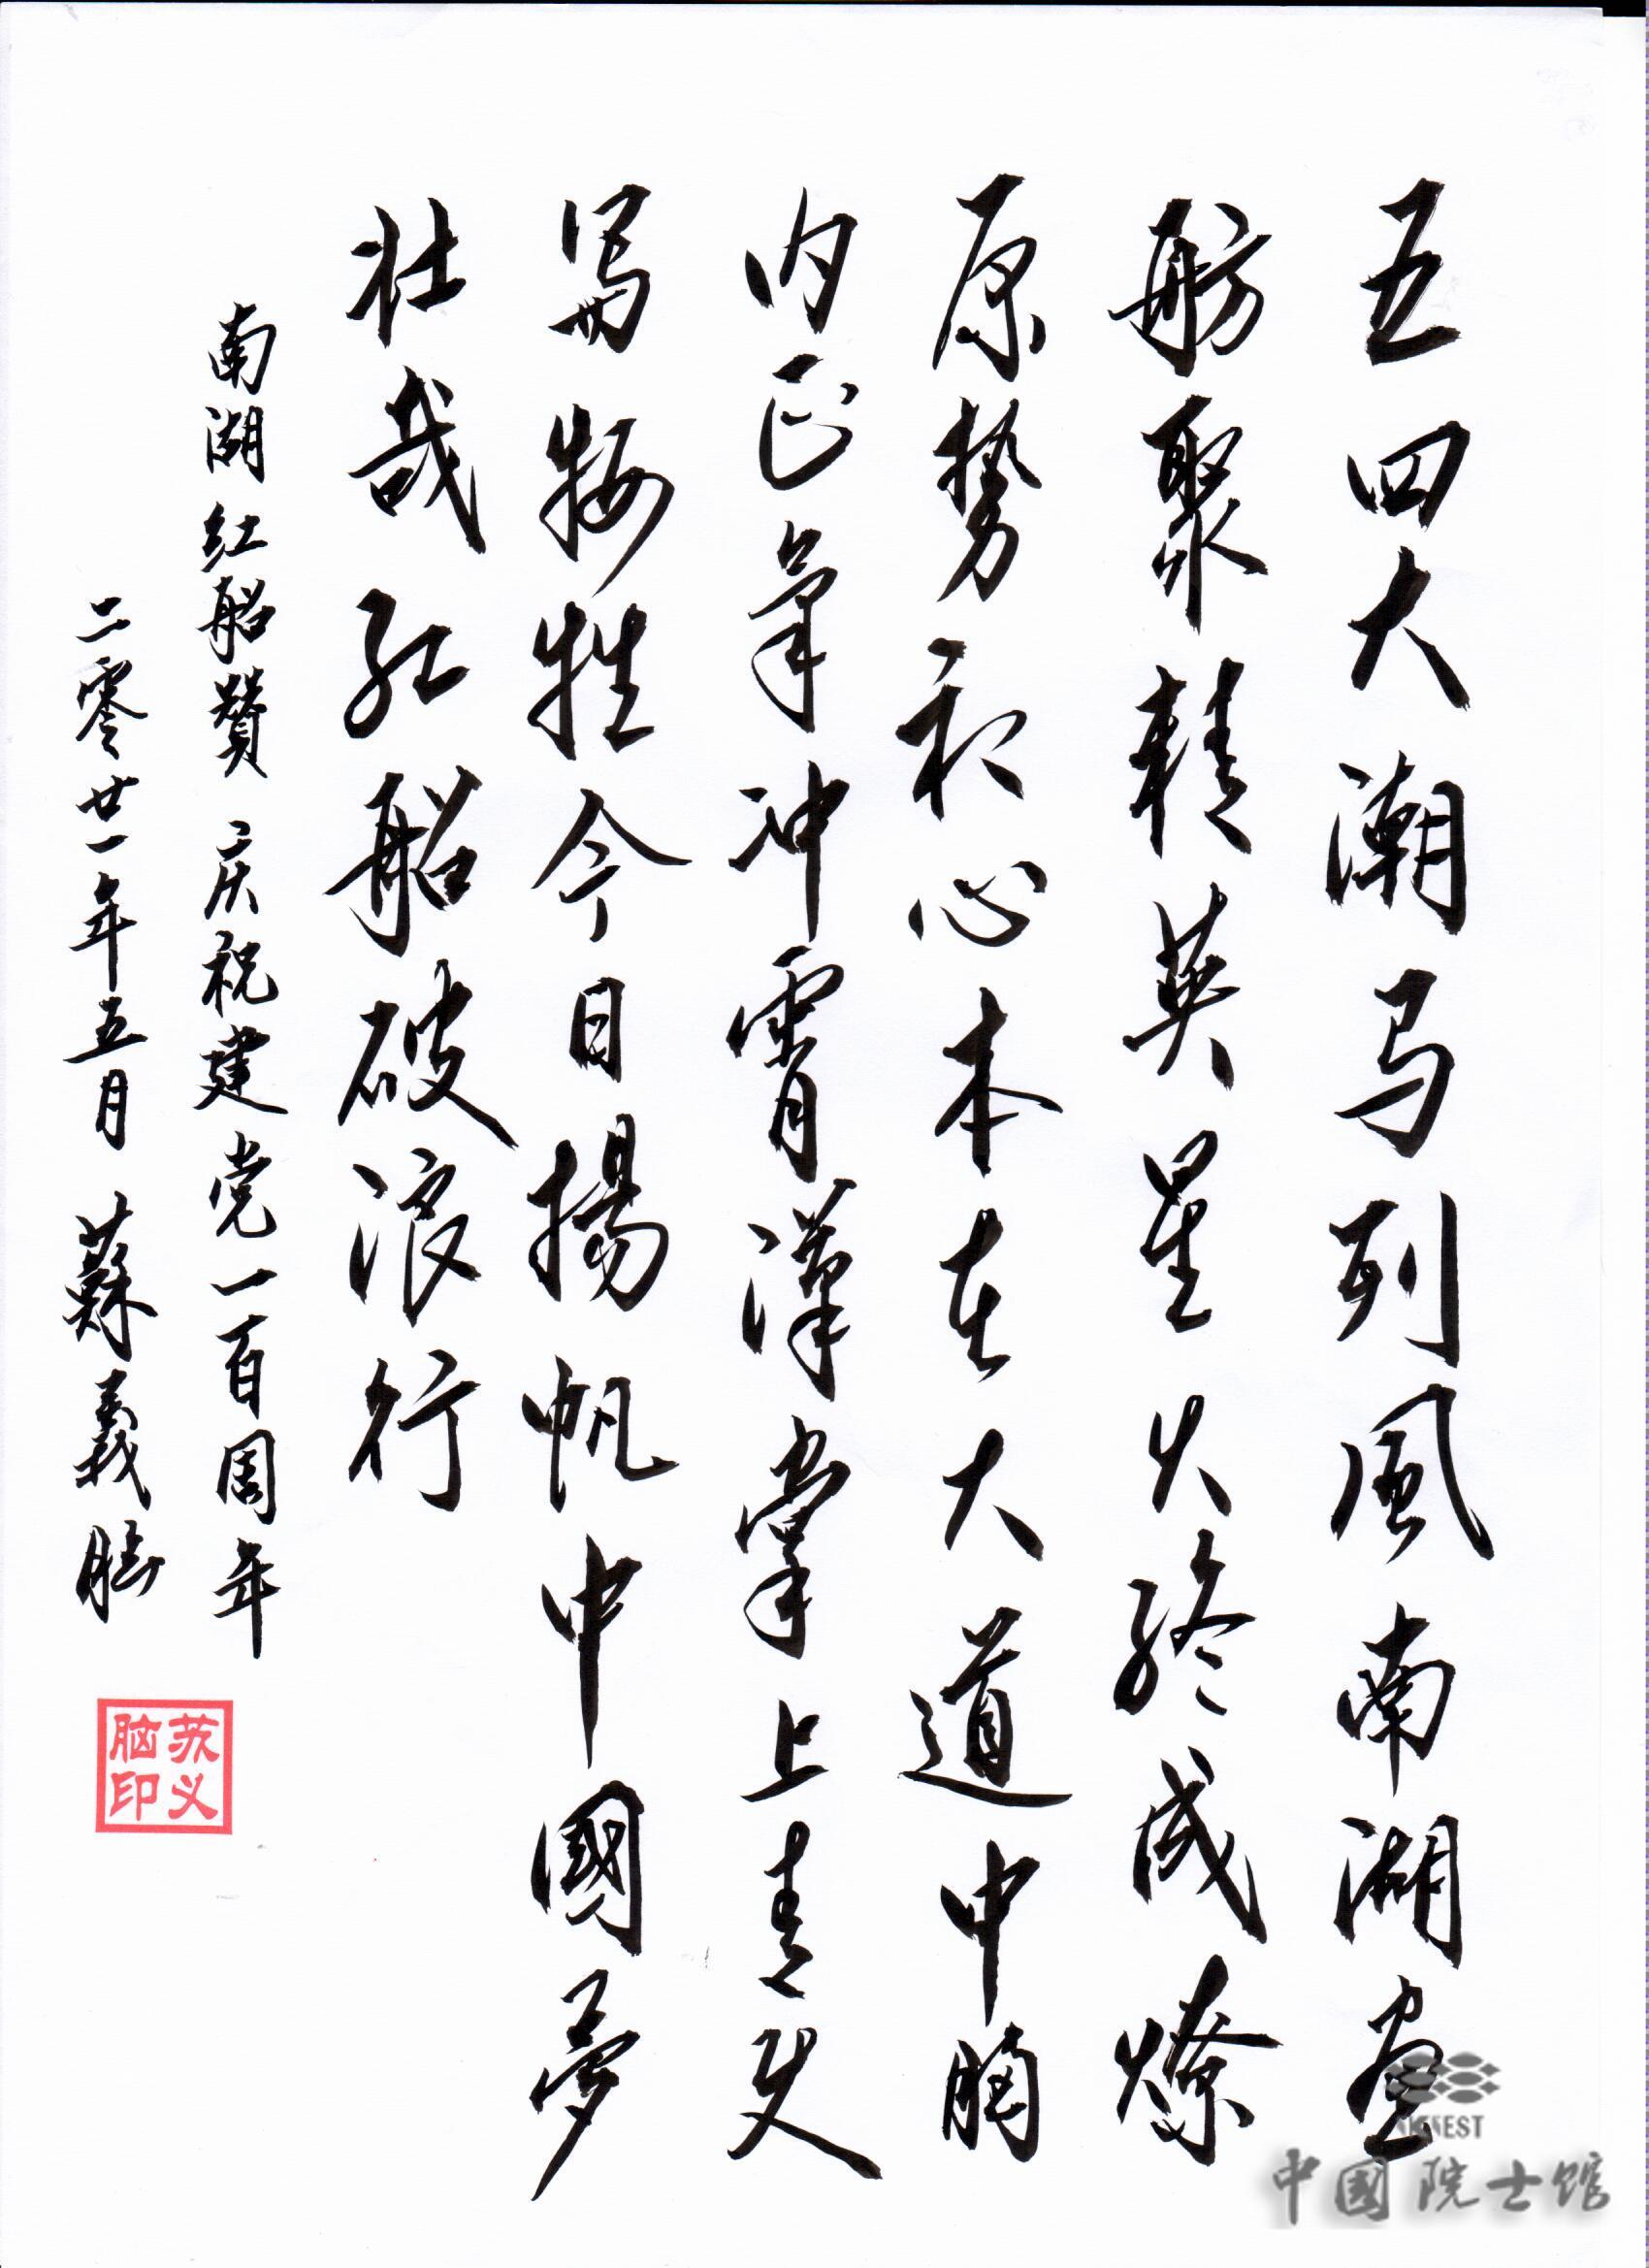 五四大潮马列風南湖畫
舫聚精英星火终成燎
原势初心本在大道中胸
内正氣冲霄漢掌上青史
写牺牲今日揚帆中國夢
壮哉红船破浪行
南湖红船赞 庆祝建党一百周年
二零廿一年五月 蘇義脑
苏义
脑印
CKNEST
中國院士馆